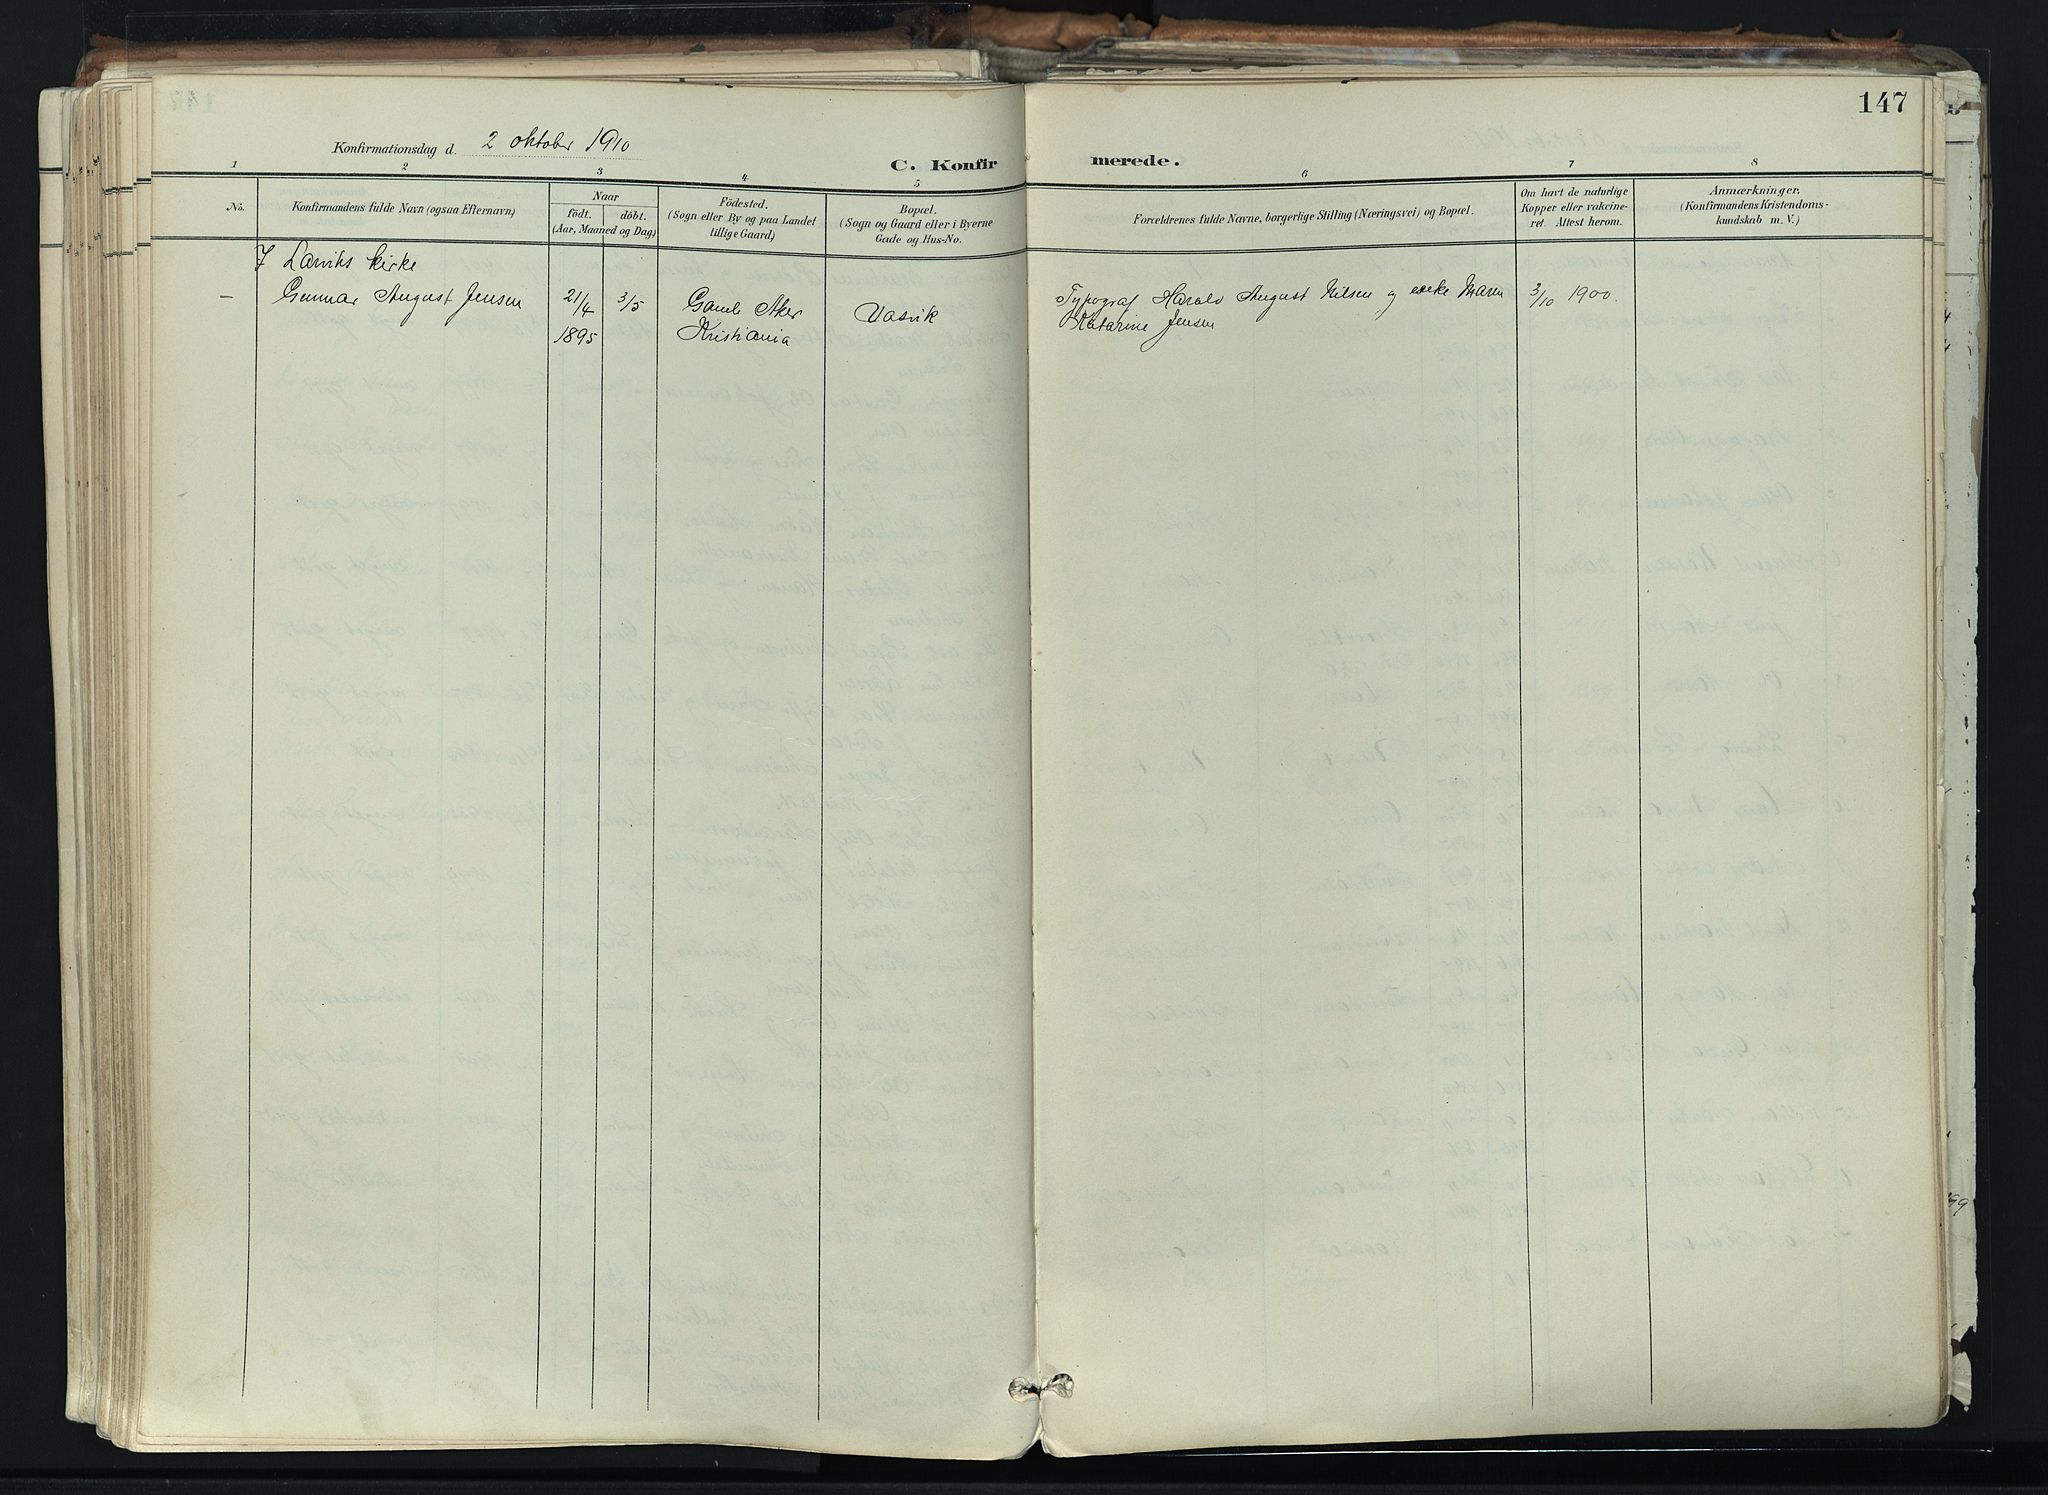 147
Konfirmationsdag d. 2 oktober 1910
C. Konfirmerede.
1 2 3 4 5 6 7 8
No.
Konfirmandens fulde Navn (ogsaa Efternavn)
Naar
födt. döbt.
(Aar, Maaned og Dag)
Födested.
(Sogn eller By og paa Landet
tillige Gaard)
Bopæl.
(Sogn og Gaard eller i Byerne
Gade og Hus-No.
Forældrenes fulde Navne, borgerlige Stilling (Næringsvei) og Bopæl.
Om havt de naturlige
Kopper eller vakcine-
ret. Attest herom.
Anmærkninger.
(Konfirmandens Kristendoms-
kundskab m. V.)
I Larviks kirke
– Gunnar August Jensen 21/4 3/5 Gaml Aker Typograf Harald August Nilsen og Maren 3/10 1900.
1895 Kristiania Katarine Jensen